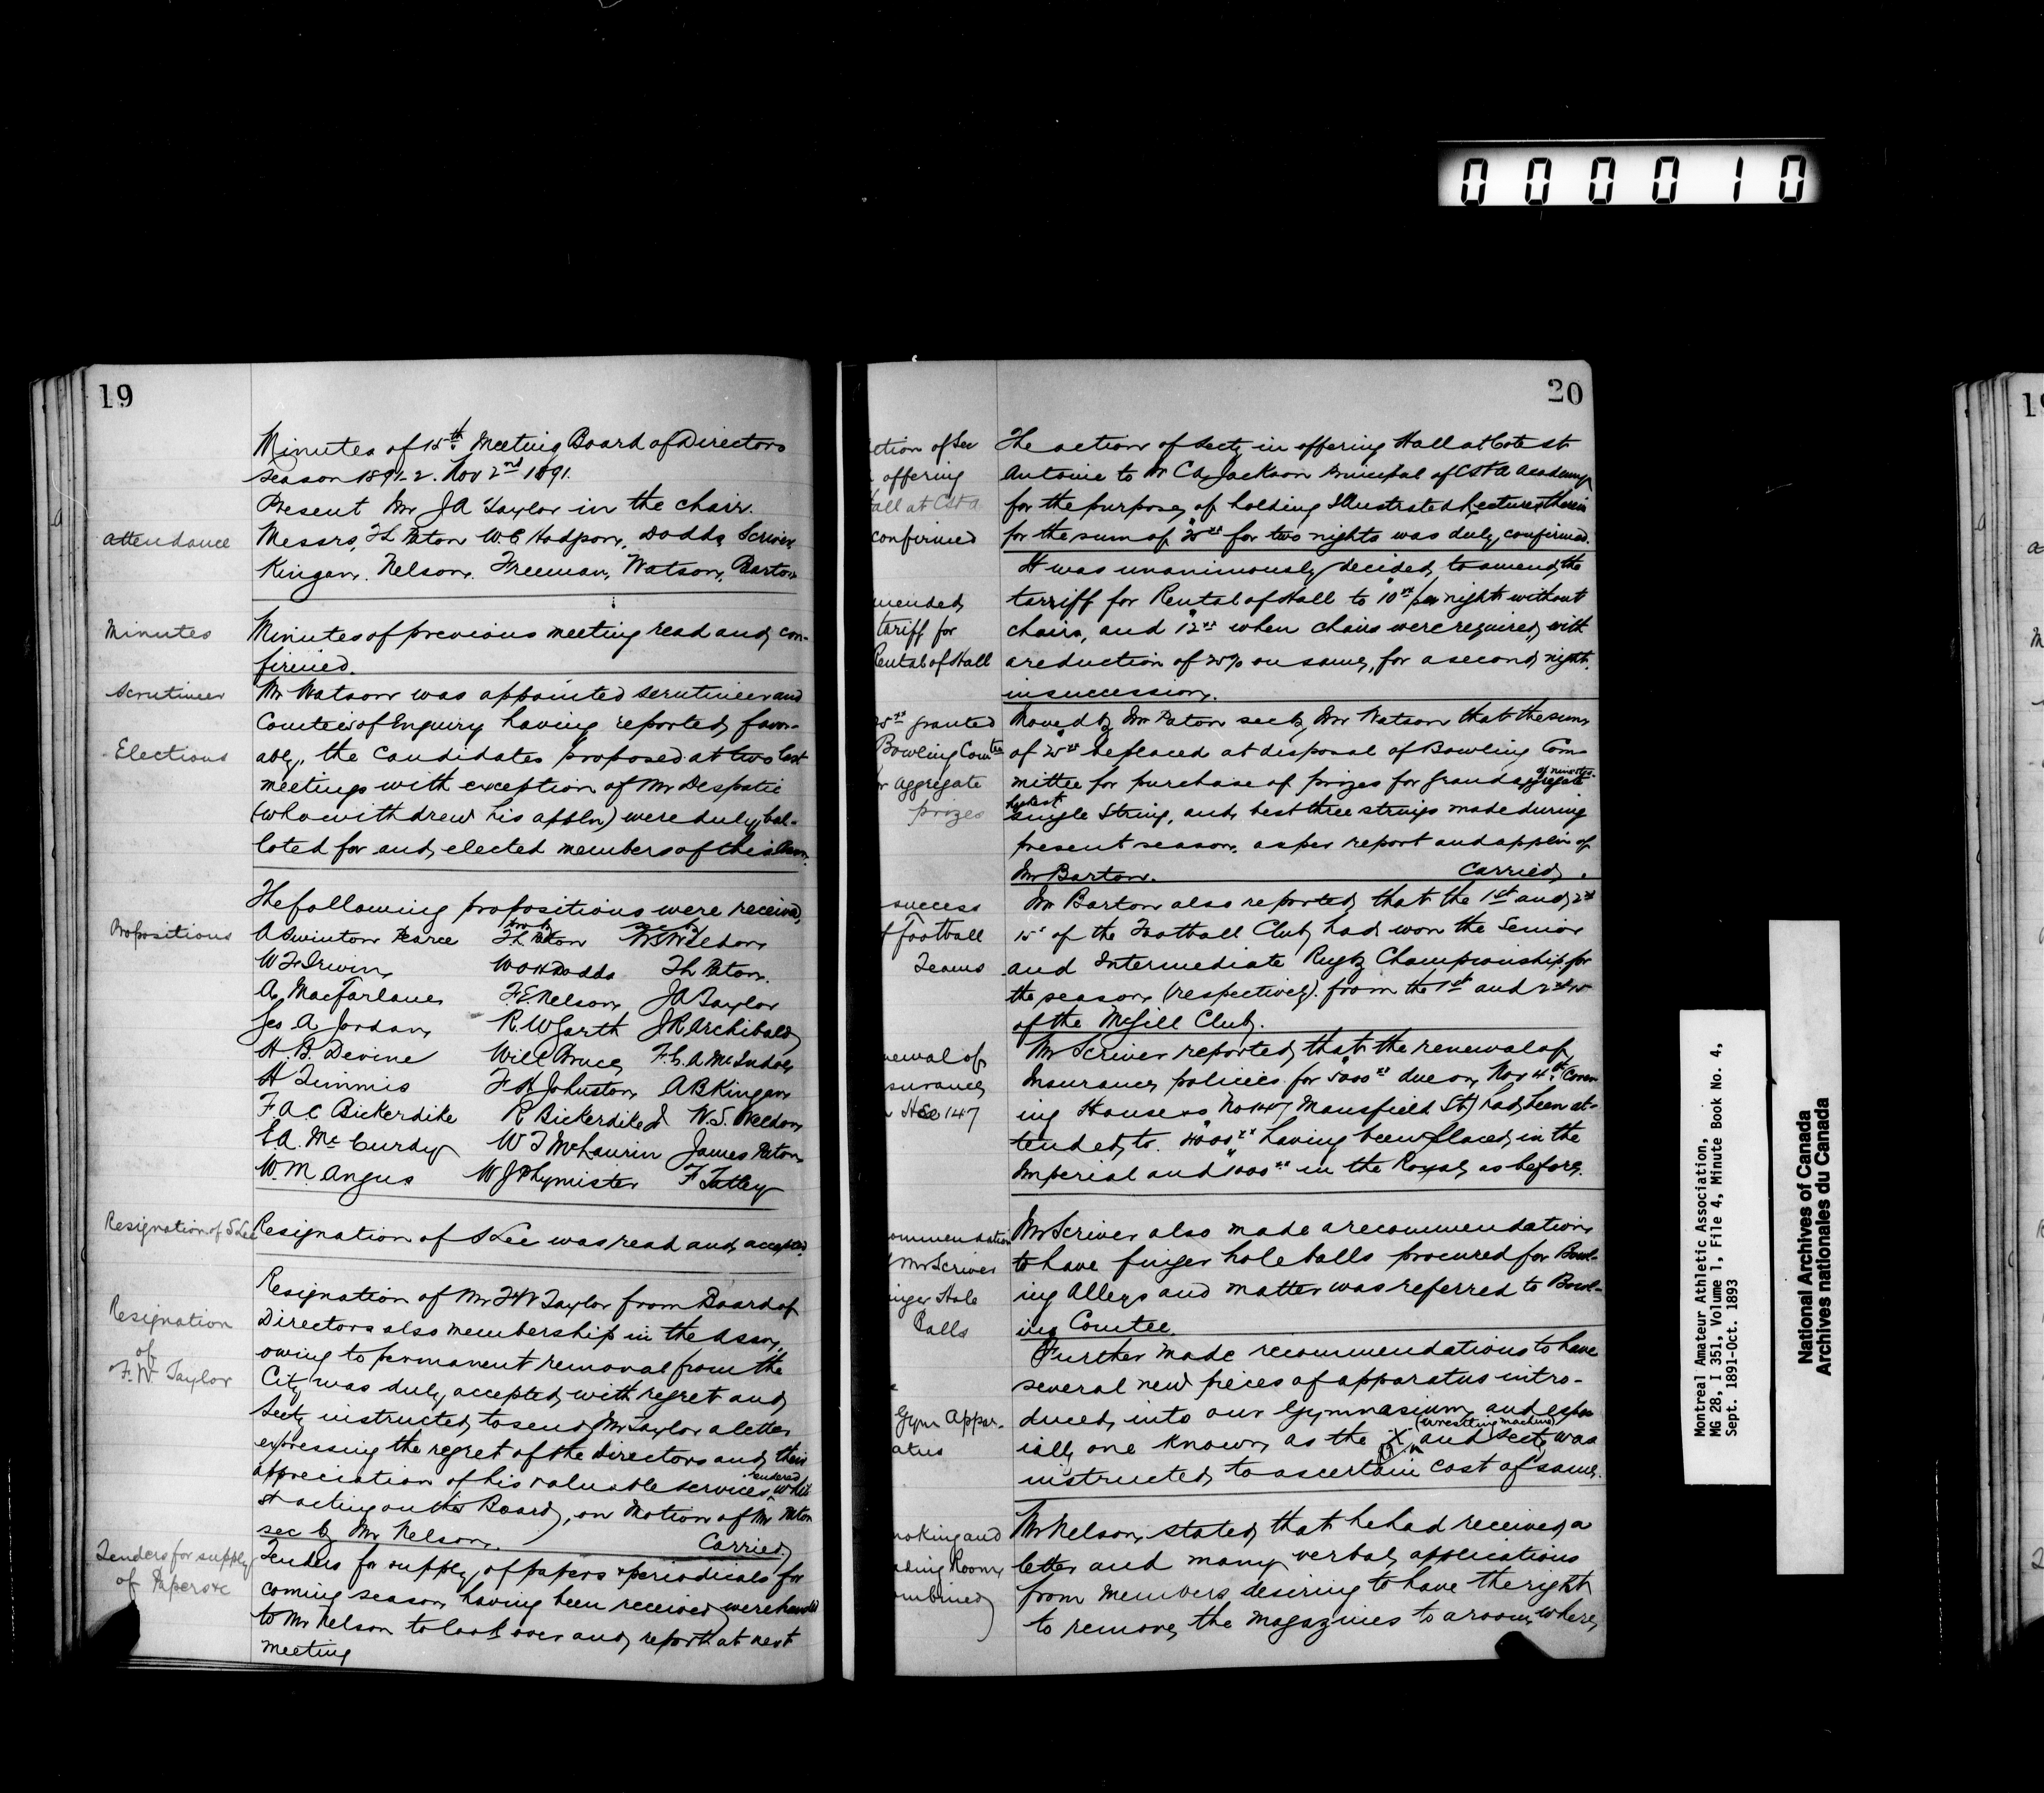 000010
19
Minutes of 15th Meeting Board of Directors
season 1891-2. Nov 2nd 1891.
Present Mr J A Taylor in the chair.
attendance
Messrs, T L Paton W. C. Hodgson, Dodds, Scriver
Kingan. Nelson. Freeman, Watson, Barton
Minutes
Minutes of previous meeting read and con-
firmed.
Scrutineer
Mr Watson was appointed scrutineer and
Comtee of Enquiry having reported favor-
Elections
ably, the candidates proposed at two last
meetings with exception of Mr Despatie
(who withdrew his appln) were duly bal-
loted for and elected members of this Assn.
The following propositions were received,
Propositions
prop by sec by
A Swinton Pearce T L Paton W S Weldon
W F Irwin W O H Dodds T L Paton.
A. MacFarlane F. E. Nelson J A Taylor
Jos A Jordan R. W Garth J R Archibald
H. B. Devine Will Bruce F. C. A. McIndoe
H Timmis F H Johnston A B Kingan
F A C Bickerdike R Bickerdike Jr W. S. Weldon
E A. McCurdy W T McLaurin James Paton
W. M. Angus W J Phymister F Tatley
Resignation of S Lee
Resignation of S Lee was read and accepted.
Resignation
of
F. W Taylor
Resignation of Mr F W Taylor from Board of
Directors also membership in the Assn,
owing to permanent removal from the
City was duly accepted with regret and
Secty instructed to send Mr Taylor a letter
expressing the regret of the directors and their
appreciation of his valuable services rendered whil
st acting on the Board, on Motion of Mr Paton
sec by Mr Nelson. Carried
Tenders for supply
of Papers &c
Tenders for supply of papers & periodicals for
coming season having been received were handed
to Mr Nelson to look over and report at next
meeting
20
ction of Sec
offering
all at CStA
confirmed
The action of Secty in offering Hall at Cote St
Antoine to Mr C A Jackson Principal of CStA academy
for the purpose of holding Illustrated Lectures therein
for the sum of for two nights was duly confirmed.
mended
tariff for
Rental of Hall
It was unanimously decided to amend the
tarriff for Rental of Hall to $10xx/per night without
chairs, and $12xx when chairs were required, with
a reduction of on same, for a second night
in succession.
granted
Bowling Comtee
r Aggregate
prizes
Moved by Mr Paton sec by Mr Watson that the sum
of be placed at disposal of Bowling Com-
mittee for purchase of prizes for grand aggregate
highest
single String, and best three strings made during
present season, as per report and appln of
Mr Barton. Carried.
success
f Football
Teams
Mr Barton also reported that the 1st and 2nd
15s of the Football Club had won the Senior
and Intermediate Rugby Championship for
the season (respectively). from the 1st and 2nd 15
of the McGill Club.
newal of
surance
Hse 147
Mr Scriver reported that the renewal of
Insurance policies for $5000xx due on Nov 4th (Cover-
ing House No 147 Mansfield St) had been at-
tended to. $4000xx having been placed in the
Imperial and $1000xx in the Royal, as before.
ommendation
Mr Scriver
inger Hole
Balls
Mr Scriver also made a recommendation
to have finger hole balls procured for Bowl-
ing Alleys and matter was referred to Bowl-
ing Comtee.
Gym Appar-
atus
Further made recommendations to have
several new pieces of apparatus intro-
duced into our Gymnasium and espec
ially one known as the X (wrestling machine) and Secty was
instructed to ascertain cost of same.
moking and
ading Room
ombined
Mr Nelson, stated that he had received a
letter and many verbal applications
from members desiring to have the right
to remove the magazines to a room where
Montreal Amateur Athletic Association,
MG 28, I 351, Volume 1, File 4, Minute Book No. 4,
Sept. 1891-Oct. 1893
National Archives of Canada
Archives nationales du Canada